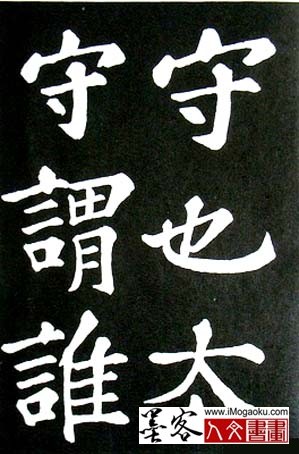 守也太
守謂誰
墨客
www.iMogaoku.com
人文書畫